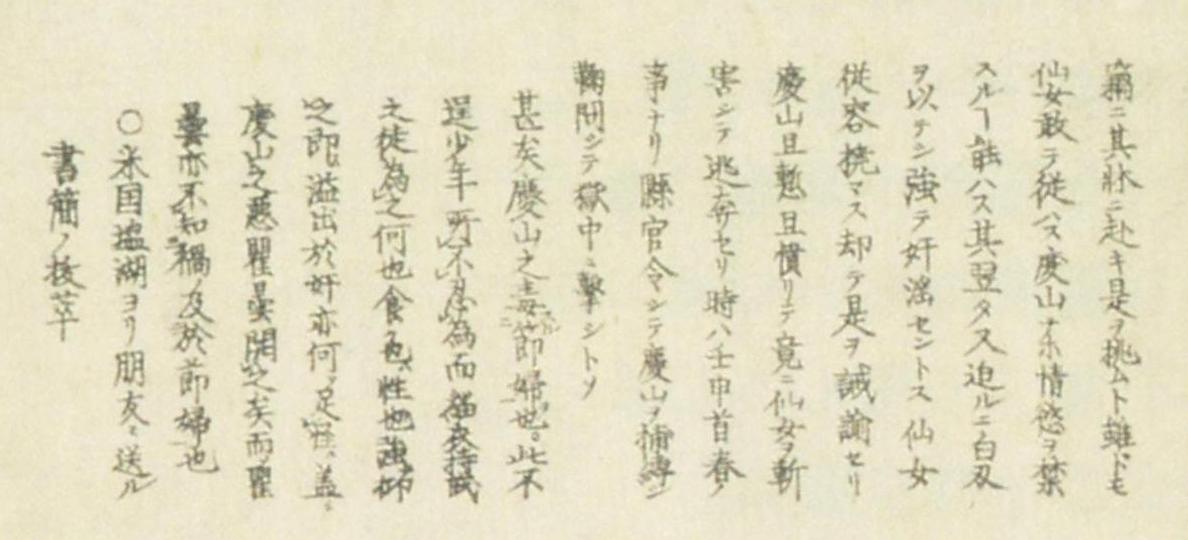 竊ニ其牀ニ赴キ是ヲ挑ムト雖ドモ
仙女敢テ従ハス慶山ナホ情慾ヲ禁
スルヿ能ハス其翌タス迫ルニ白刃
ヲ以テシ強テ奸淫セントス仙女
従容撓マス却テ是ヲ誡諭セリ
慶山且慙且憤リテ竟ニ仙女ヲ斬
害シテ逃奔セリ時ハ壬申首春ノ
事ナリ縣官令シテ慶山ヲ捕縛シ
鞠問シテ獄中ニ繫シトソ
甚矣慶山之毒節婦也此不
逞少年所不忍為而
之徒為之何也食色性也
之即溢出於奸亦何足怪蓋
慶山之悪瞿曇開之矣而瞿
曇亦不知禍及於節婦也
○米国塩湖ヨリ朋友ニ送ル
書簡ノ抜萃